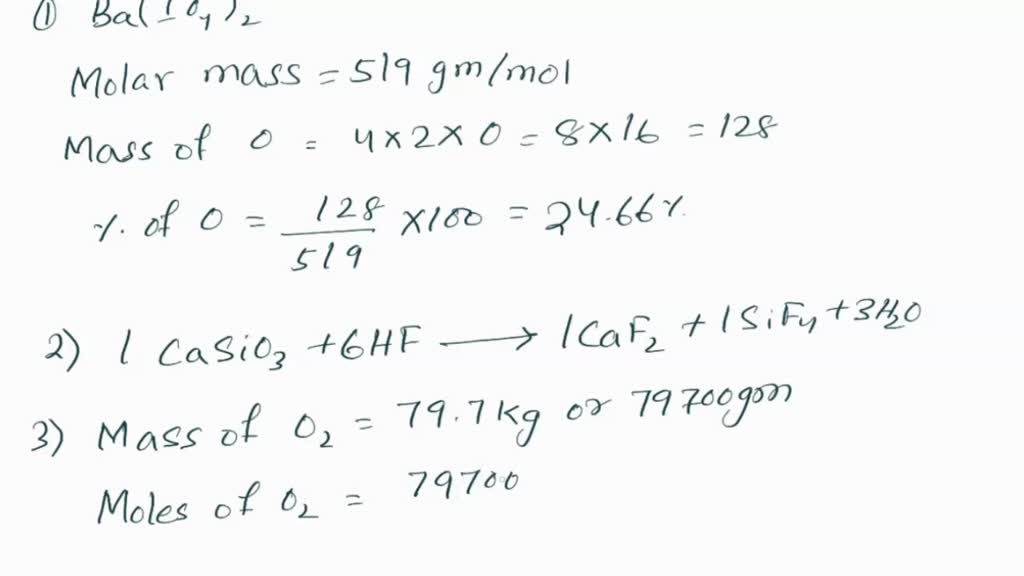 ① Ba(IO₄)₂
Molar mass = 519 gm/mol
Mass of O = 4×2×O = 8×16 = 128
%. of O = 128/519 ×100 = 24.66%.
2) 1 CaSiO₃ + 6HF ⟶ 1CaF₂ + 1SiF₄ + 3H₂O
3) Mass of O₂ = 79.7kg or 79700gm
Moles of O₂ = 79700